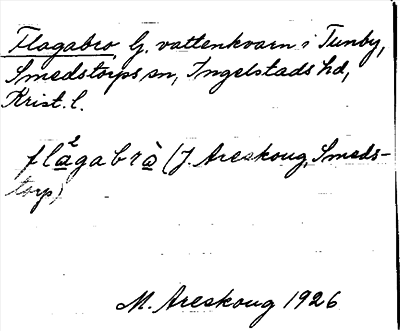 Flagabro, G. vattenkvarn i Tunby,
Smedstorps sn, Ingelstads hd,
Krist. l.
fla²gabrà (J. Areskoug, Smeds-
torp)
M. Areskoug 1926